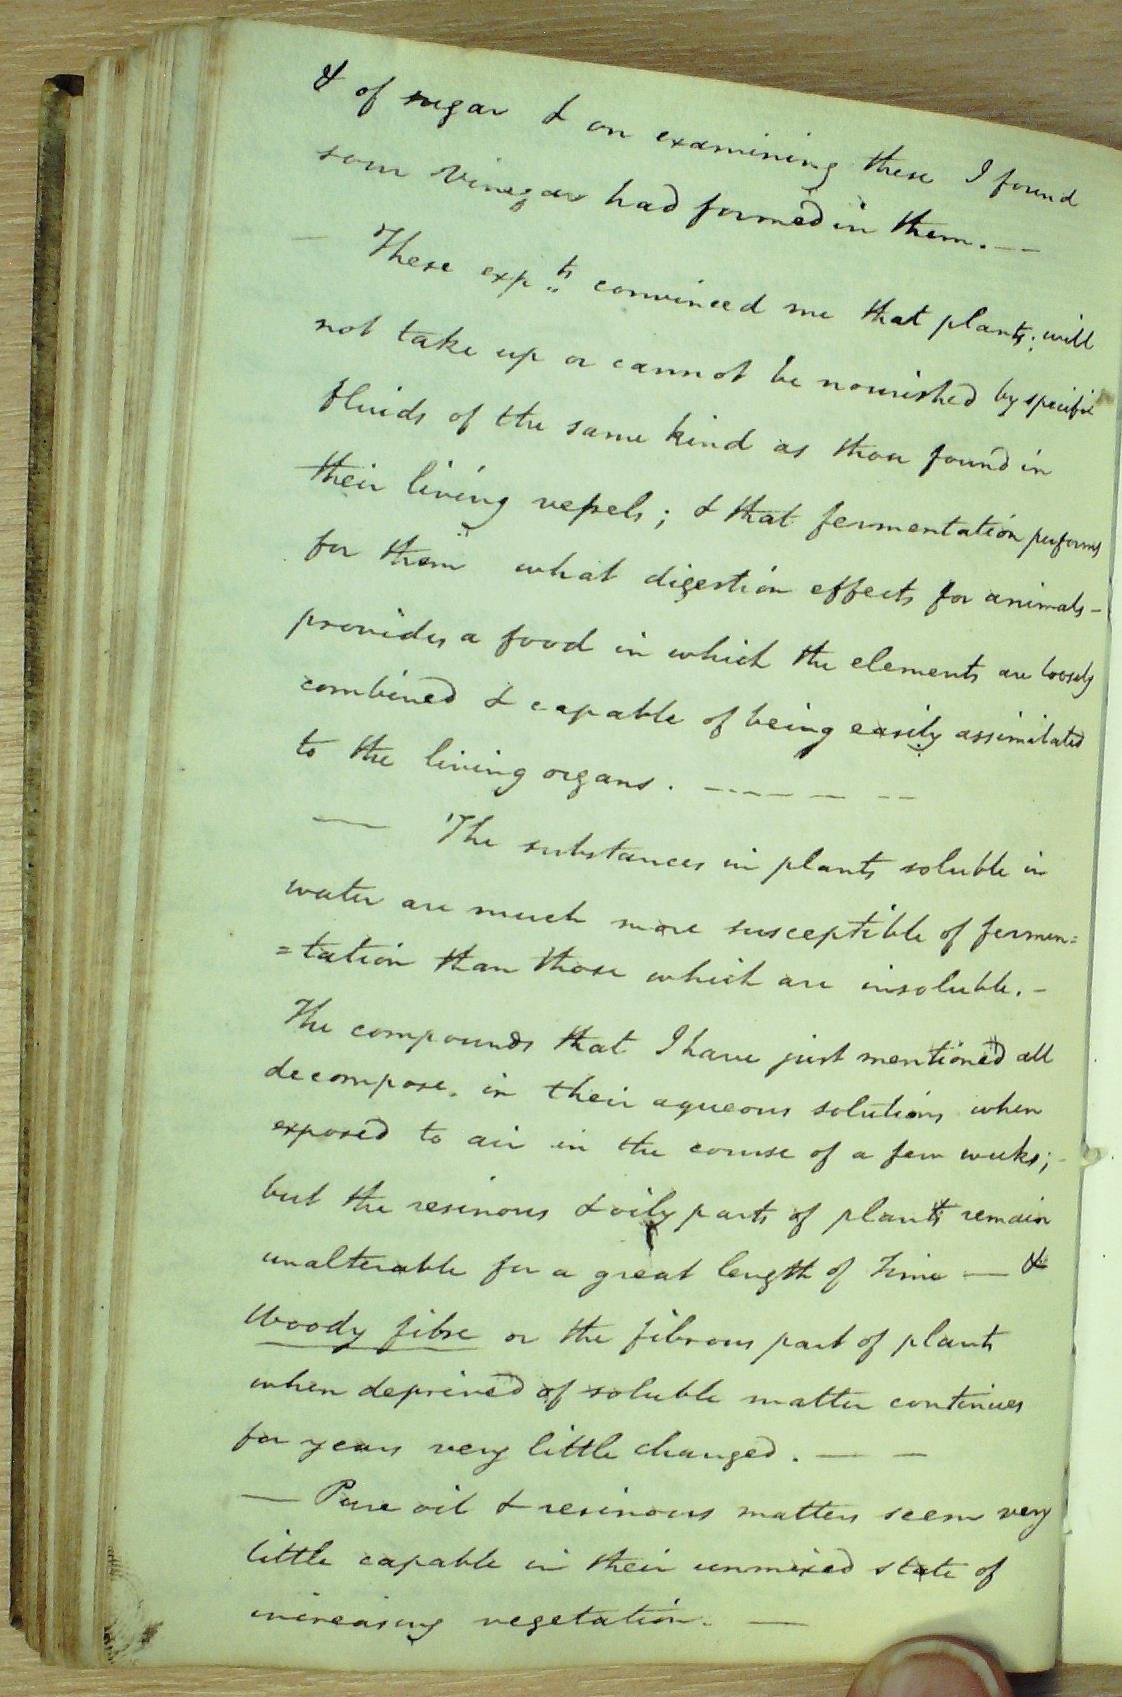 & of sugar & on examining these I found
some Vinegar had formed in them. —
— These exp.ts convinced me that plants will
not take up or cannot be nourished by specific
fluids of the same kind as those found in
their living vessels; & that fermentation performs
for them what digestion effects for animals –
provides a food in which the elements are loosely
combined & capable of being easily assimilated
to the living organs. — — — —
— The substances in plants soluble in
water are much more susceptible of fermen=
=tation than those which are insoluble. –
The compounds that I have just mentioned all
decompose. in their aqueous solutions when
exposed to air in the course of a few weeks; –
but the resinous & oily parts of plants remain
unalterable for a great length of time — &
Woody fibre or the fibrous part of plants
when deprived of soluble matter continues
for years very little changed. — —
— Pure oil & resinous matters seem very
little capable in their unmixed state of
increasing vegetation. —